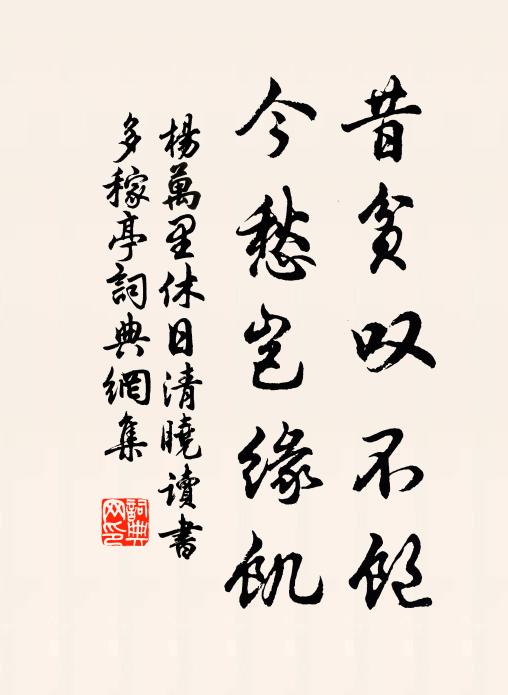 昔贫叹不饱
今愁岂缘飢
楊萬里休日清曉讀書
多稼亭詞典網集
詞典网印